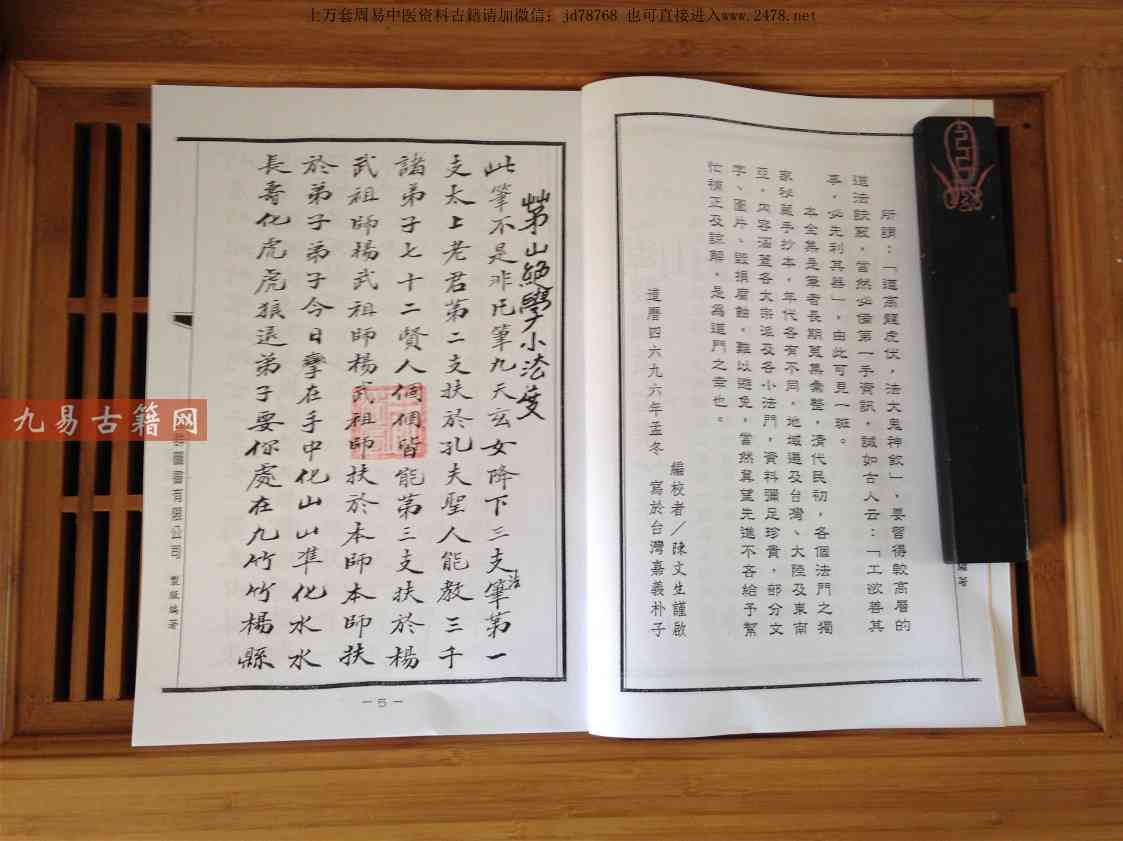 上万套周易中医资料古籍请加微信：jd78768 也可直接进入www.2478.net
所謂：「道高龍虎伏，法大鬼神欽」，要習得較高層的
道法訣竅，當然必備第一手資訊，誠如古人云：「工欲善其
事，必先利其器」，由此可見一斑。
本全集是筆者長期蒐集彙整，清代民初，各個法門之獨
家秘藏手抄本，年代各有不同，地域遍及台灣、大陸及東南
亞，內容涵蓋各大宗派及各小法門，資料彌足珍貴，部分文
字、圖片、毀損腐蝕，難以避免，當然冀望先進不吝給予幫
忙補正及諒解，是為道門之幸也。
編校者／陳文生謹啟
道曆四六九六年孟冬 寫於台灣嘉義朴子
茅山絕學小法度
此筆不是非凡筆九天玄女降下三支筆法第一
支太上老君第二支扶於孔夫聖人能教三千
諸弟子七十二賢人個個皆能第三支扶於楊
武祖師楊武祖師楊武祖師扶於本師本師扶
於弟子弟子今日拏在手中化山山準化水水
長壽化虎虎狼退弟子要你處在九竹竹楊縣
圖書有限公司 製版編著
九易古籍网
－5－
編著